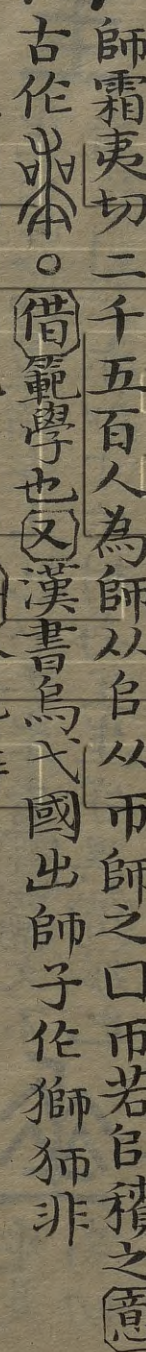 師霜夷切二千五百人為師从𠂤从帀師之口帀若𠂤積之意
古作。借範學也又漢書烏弋國出師子作獅狮非